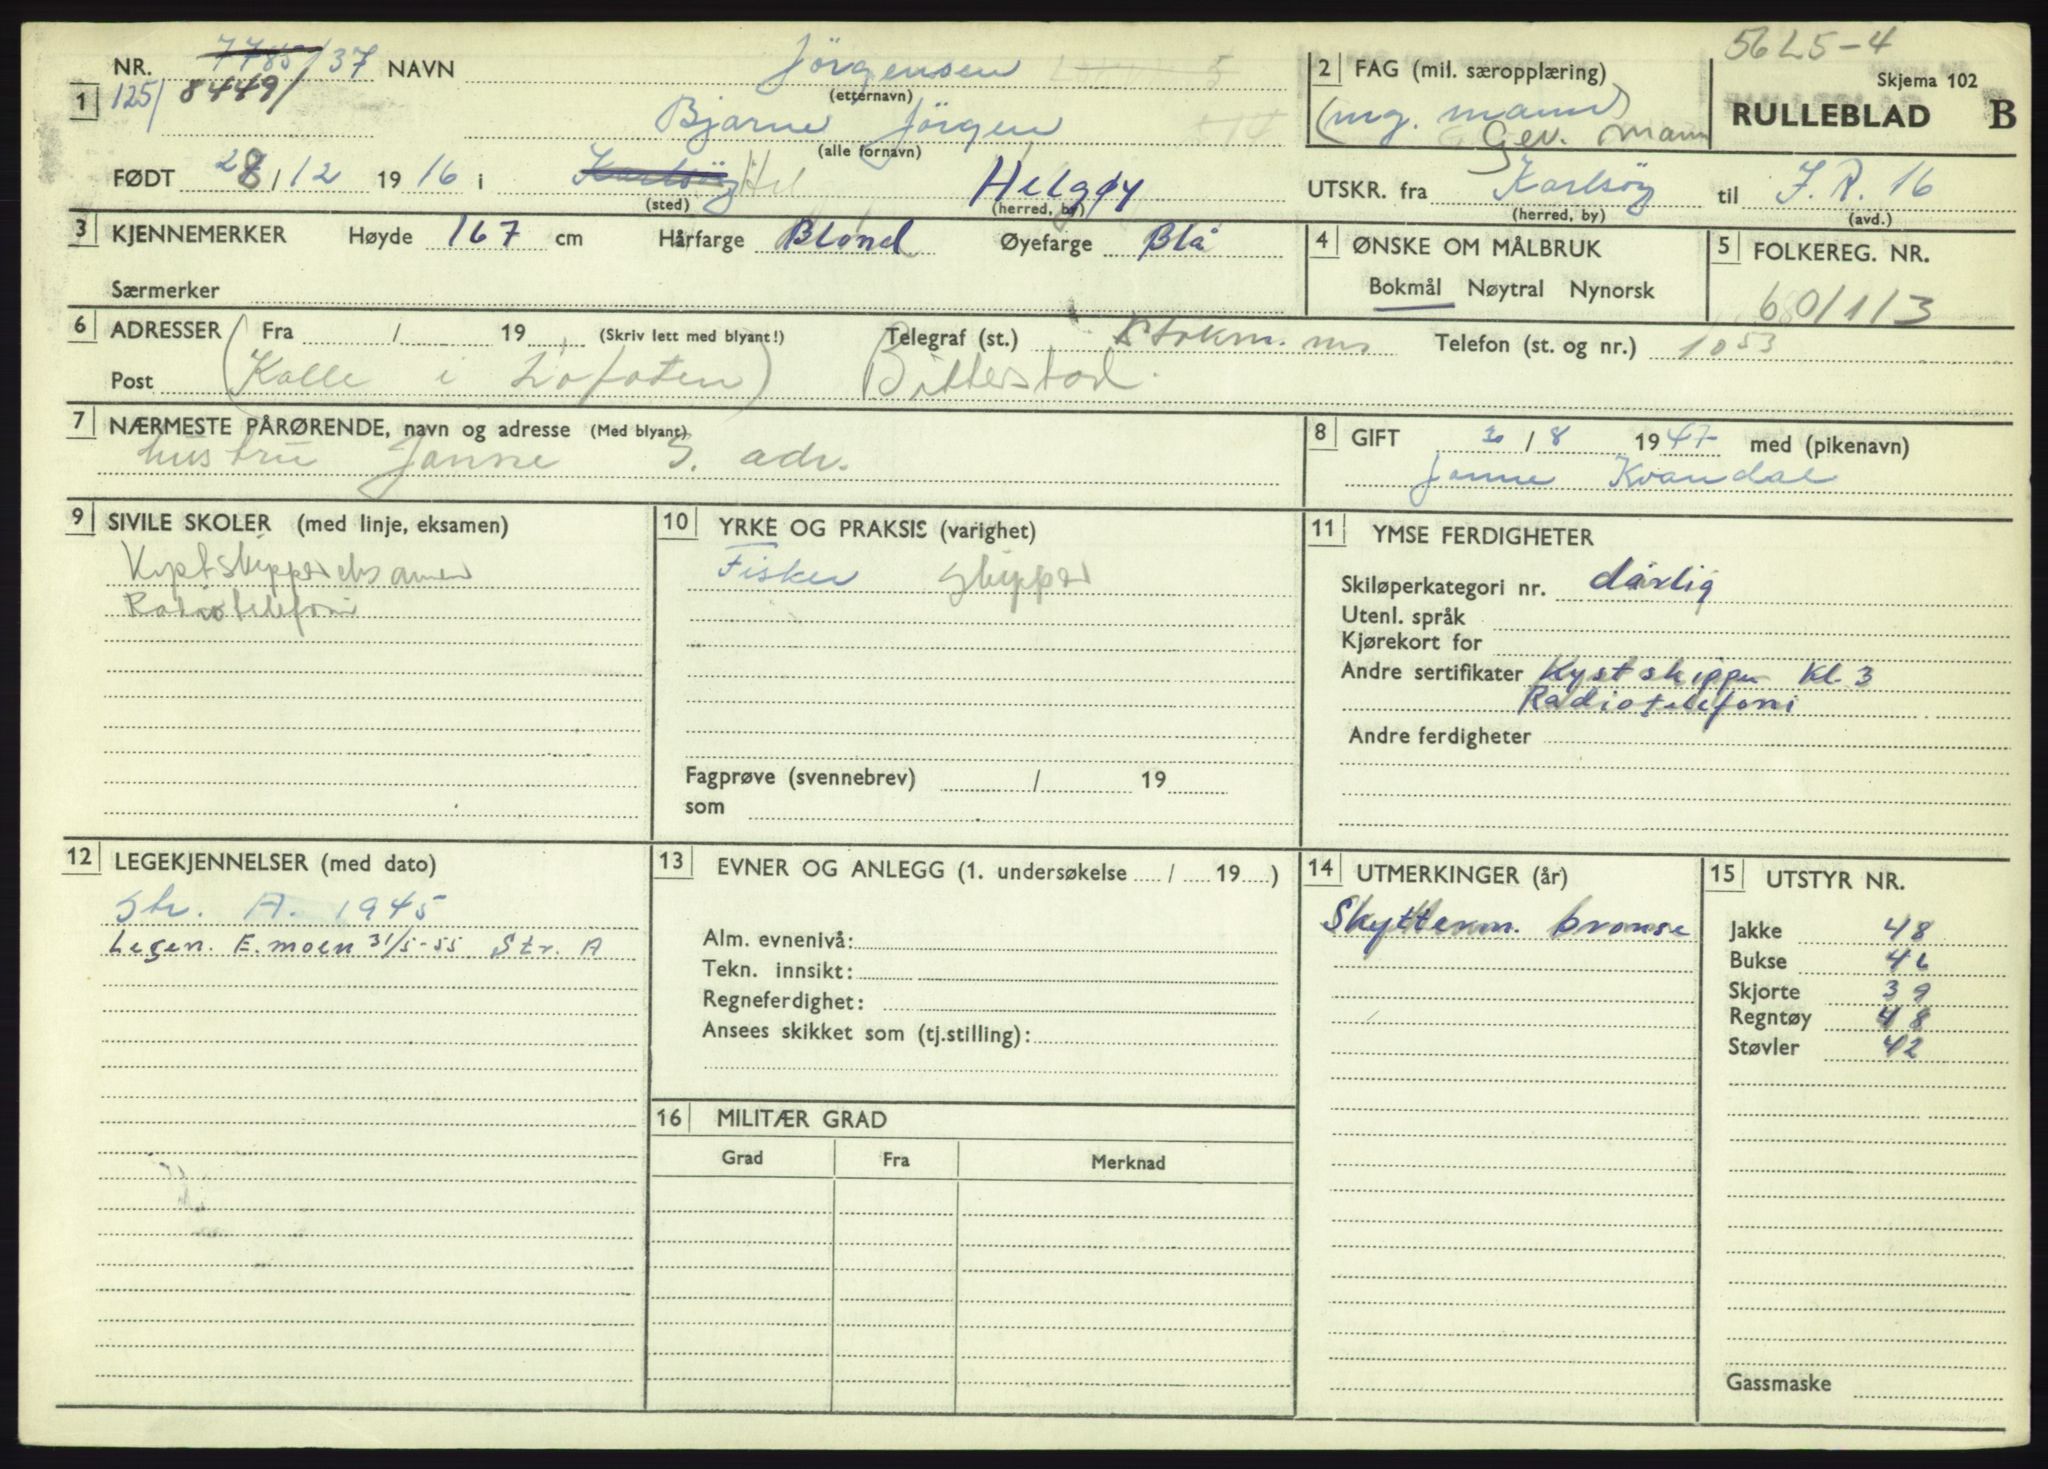 56L5-4
1 NR. 7785/37 NAVN Jörgensen
125/ 8449/ (etternavn)
Bjarne Jörgen
(alle fornavn)
FØDT 28/12 1916 i Karlsöy Hel Helgøy
(sted) (herred, by)
2 FAG (mil. særopplæring)
(mg. mann)
Gev. mann
Skjema 102
RULLEBLAD B
UTSKR. fra Karlsöy til I.R. 16
(herred, by) (avd.)
3 KJENNEMERKER Høyde 167 cm Hårfarge Blond Øyefarge Blå
Særmerker
4 ØNSKE OM MÅLBRUK
Bokmål Nøytral Nynorsk
5 FOLKEREG. NR.
60/1/3
6 ADRESSER Fra / 19 (Skriv lett med blyant!) Telegraf (st.) Stokm.nes Telefon (st. og nr.) 1053
Post (Kalle i Lofoten) Bitterstad.
7 NÆRMESTE PÅRØRENDE, navn og adresse (Med blyant)
hustru Janne S. adr.
8 GIFT 30/8 1947 med (pikenavn)
Janne Kvandal
9 SIVILE SKOLER (med linje, eksamen)
Kystskippereksamen
Radiotelefoni
10 YRKE OG PRAKSIS (varighet)
Fisker Skipper
Fagprøve (svennebrev) / 19
som
11 YMSE FERDIGHETER
Skiløperkategori nr. dårlig
Utenl. språk
Kjørekort for
Andre sertifikater Kystskipper Kl. 3
Radiotelefoni
Andre ferdigheter
12 LEGEKJENNELSER (med dato)
Str. A. 1945
Legen. E.moen 31/5-55. Str. A
13 EVNER OG ANLEGG (1. undersøkelse / 19 )
Alm. evnenivå:
Tekn. innsikt:
Regneferdighet:
Ansees skikket som (tj.stilling):
14 UTMERKINGER (år)
Skytterm. bronse
15 UTSTYR NR.
Jakke 48
Bukse 46
Skjorte 39
Regntøy 48
Støvler 42
Gassmaske
16 MILITÆR GRAD
Grad Fra Merknad